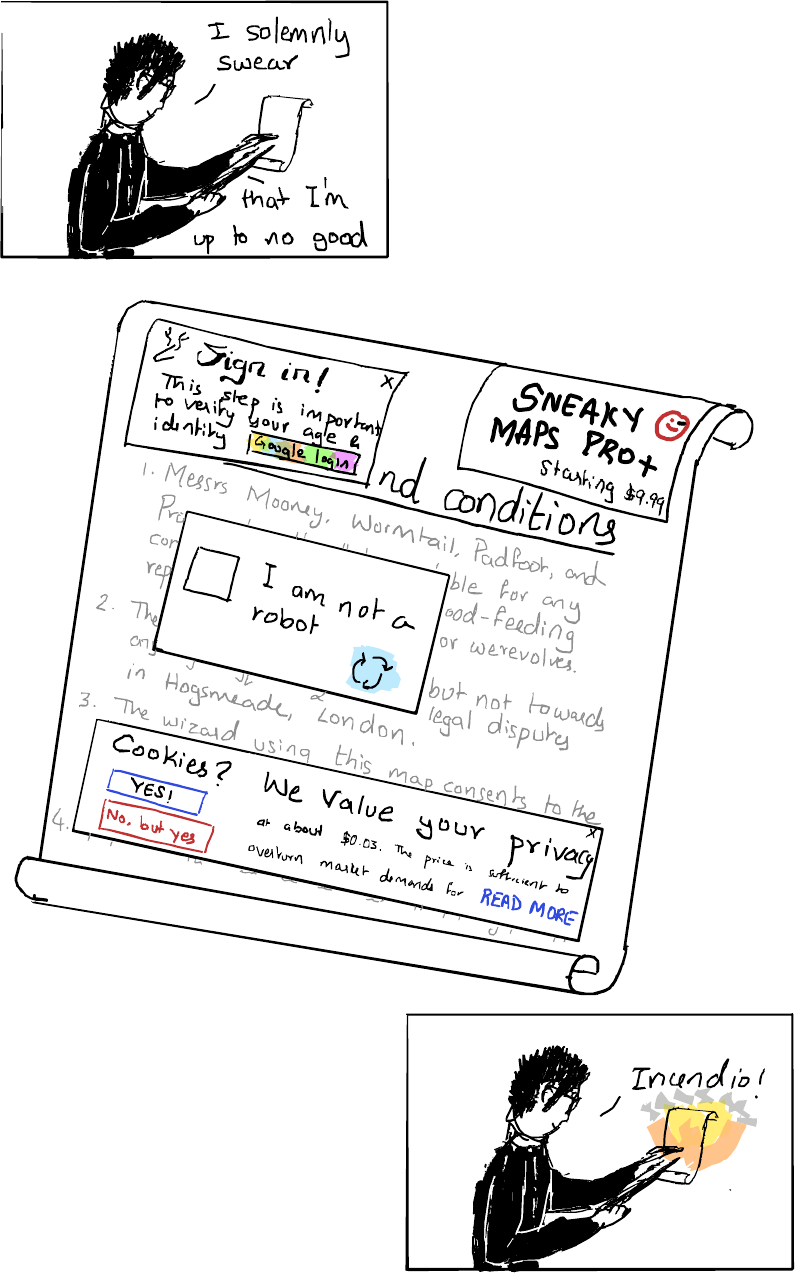 I solemnly
swear
that I'm
up to no good
Sign in!
This step is important
to verify your age &
identity
Google login
X
SNEAKY
MAPS PRO+
starting $9.99
nd conditions
1. Messrs Mooney, Wormtail, Padfoot, and
Pro
con ble for any
rep ood-feeding
2. The or werevolves.
any but not towards
in Hogsmeade, London. legal disputes
3. The wizard using this map consents to the
4.
I am not a
robot
Cookies?
YES!
No, but yes
We value your privacy
at about $0.03. The price is sufficient to
overturn market demands for READ MORE
x
Incendio!